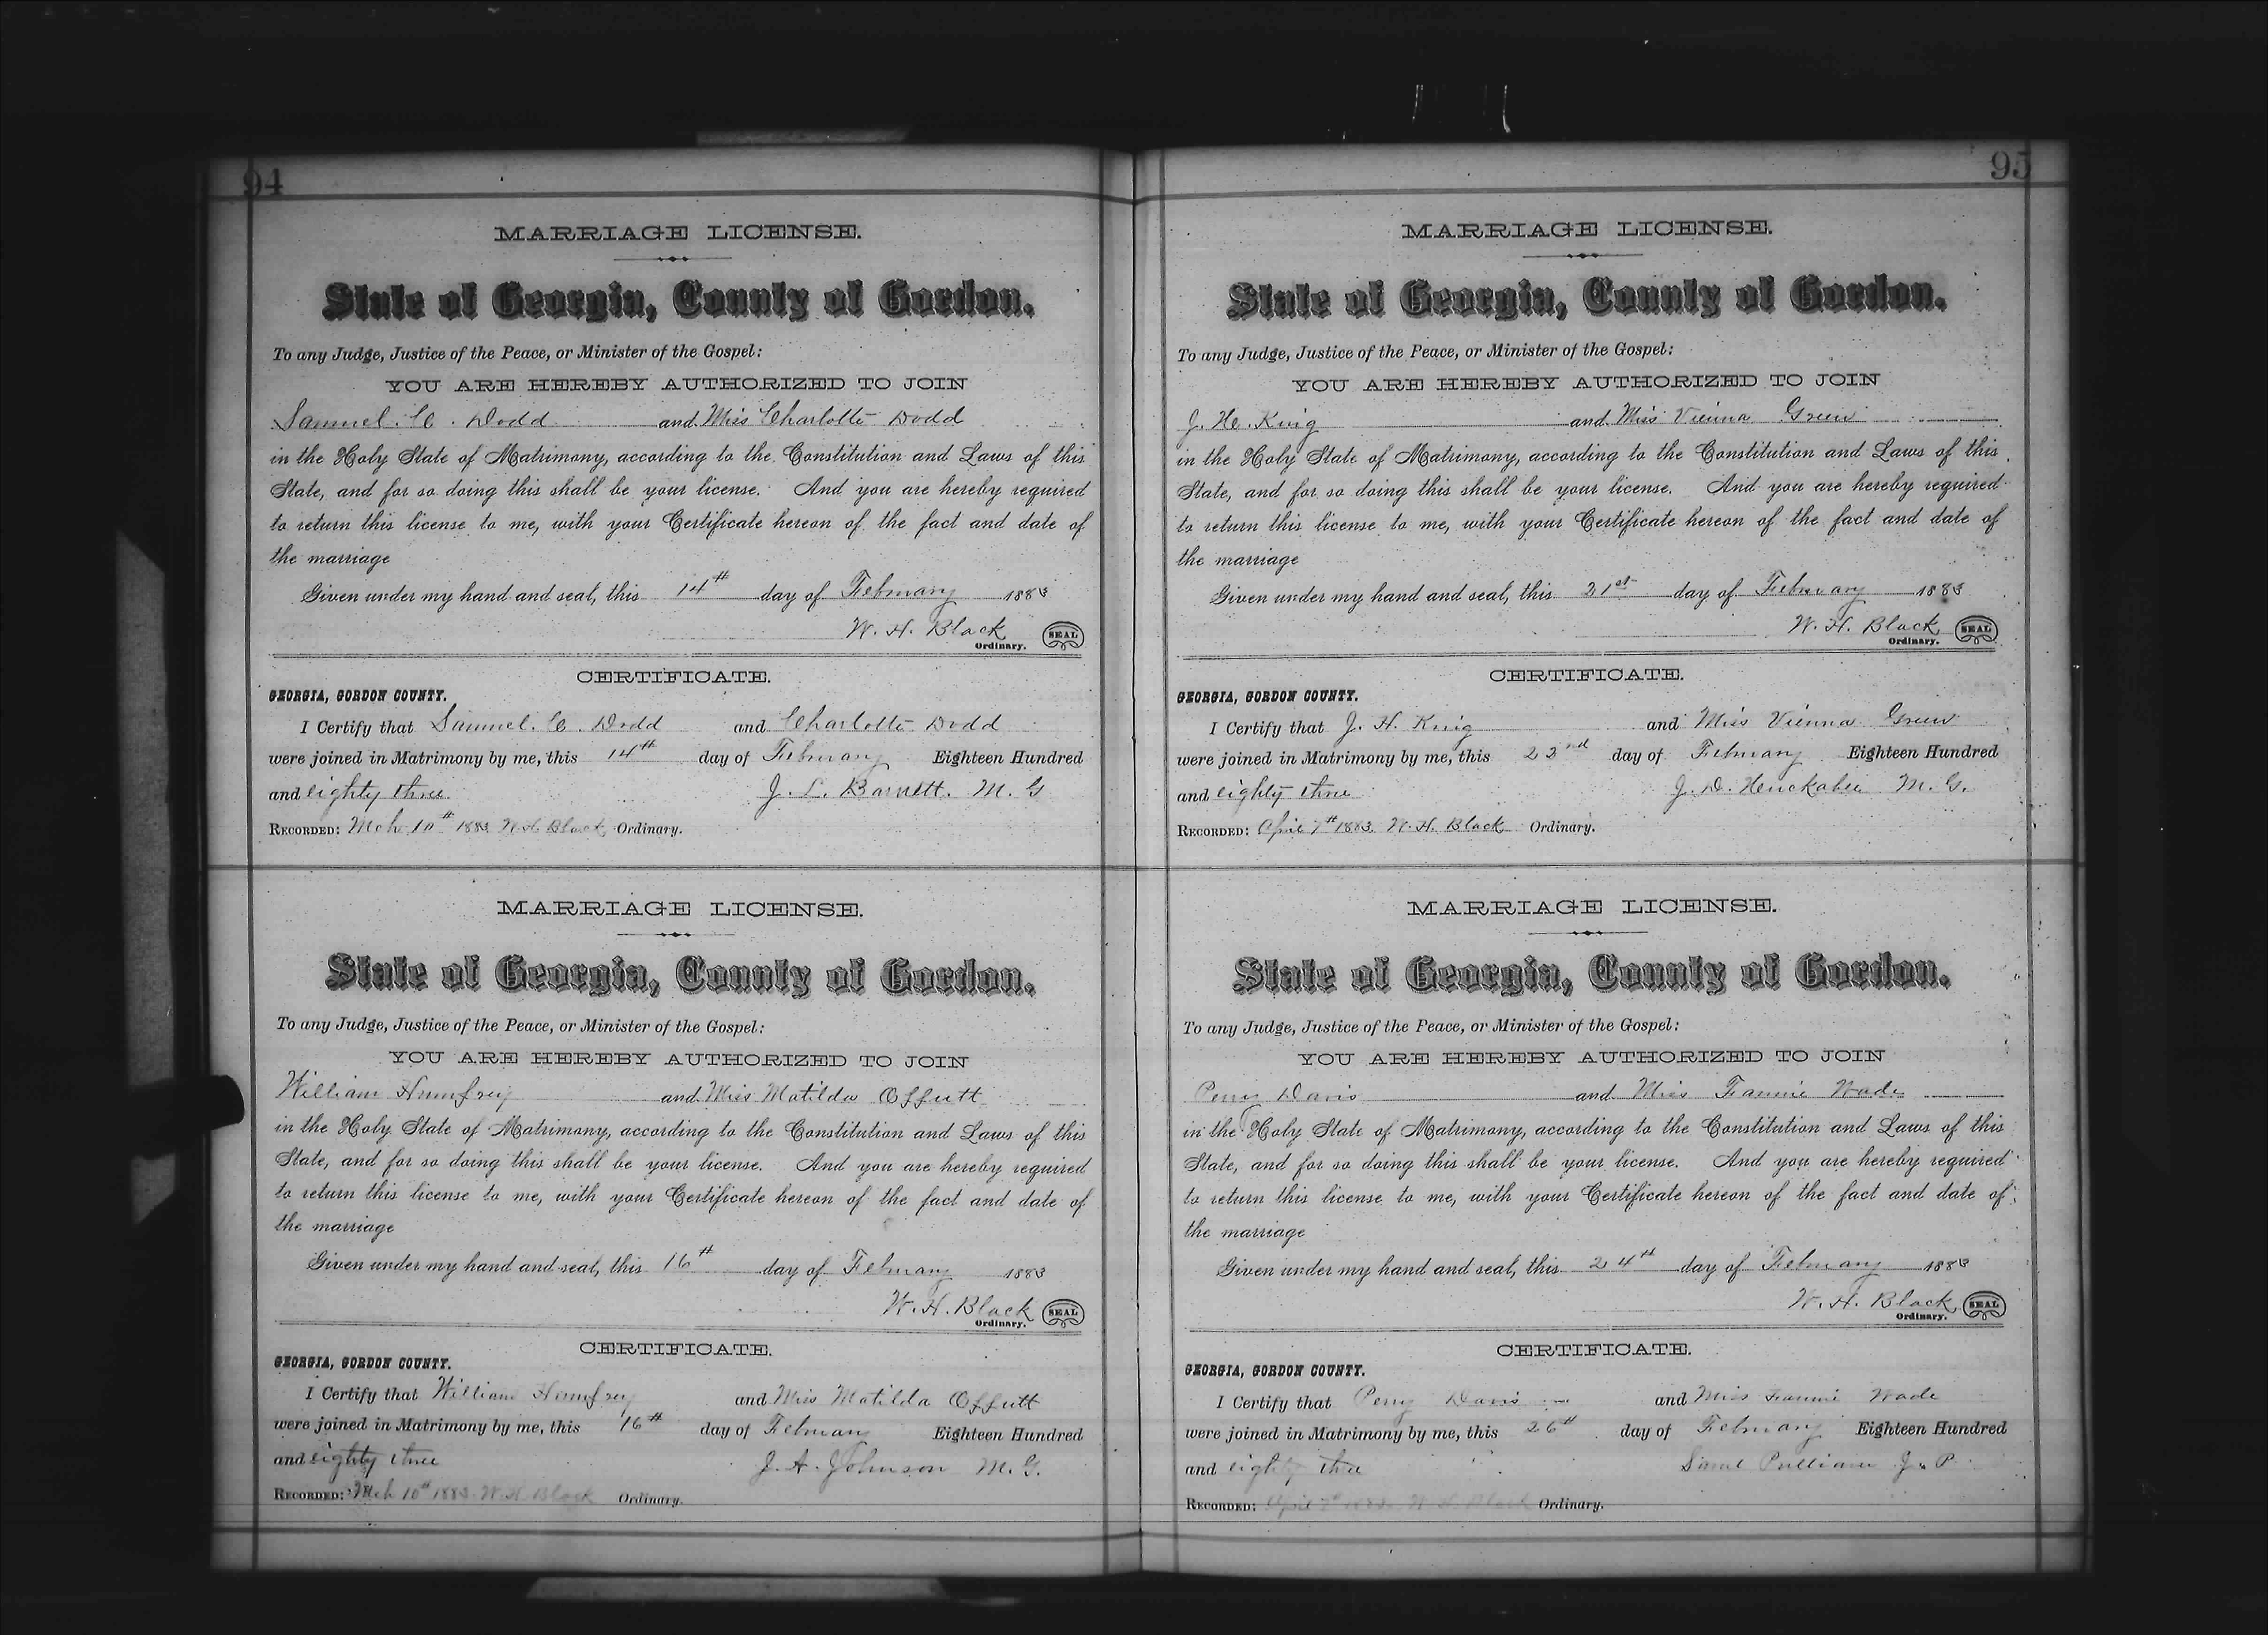 94
MARRIAGE LICENSE.
State of Georgia, County of Gordon.
To any Judge, Justice of the Peace, or Minister of the Gospel:
YOU ARE HEREBY AUTHORIZED TO JOIN
Samuel. C. Dodd and Miss Charlotte Dodd
in the Holy State of Matrimony, according to the Constitution and Laws of this
State, and for so doing this shall be your license. And you are hereby required
to return this license to me, with your Certificate hereon of the fact and date of
the marriage
Given under my hand and seal, this 14th day of February 1883
W. H. Black SEAL
Ordinary.
CERTIFICATE.
GEORGIA, GORDON COUNTY.
I Certify that Samuel. C. Dodd and Charlotte Dodd
were joined in Matrimony by me, this 14th day of February Eighteen Hundred
and eighty three J. L. Barnett. M. G
RECORDED: Mch 10th 1883 W. H. Black Ordinary.
MARRIAGE LICENSE.
State of Georgia, County of Gordon.
To any Judge, Justice of the Peace, or Minister of the Gospel:
YOU ARE HEREBY AUTHORIZED TO JOIN
William Humfrey and Miss Matilda Offutt
in the Holy State of Matrimony, according to the Constitution and Laws of this
State, and for so doing this shall be your license. And you are hereby required
to return this license to me, with your Certificate hereon of the fact and date of
the marriage
Given under my hand and seal, this 16th day of February 1883
W. H. Black SEAL
Ordinary.
CERTIFICATE.
GEORGIA, GORDON COUNTY.
I Certify that William Humfrey and Miss Matilda Offutt
were joined in Matrimony by me, this 16th day of February Eighteen Hundred
and eighty three J. A. Johnson M. G.
RECORDED: Mch 10th 1883 W. H. Black Ordinary.
95
MARRIAGE LICENSE.
State of Georgia, County of Gordon.
To any Judge, Justice of the Peace, or Minister of the Gospel:
YOU ARE HEREBY AUTHORIZED TO JOIN
J. H. King and Miss Vienna Green
in the Holy State of Matrimony, according to the Constitution and Laws of this
State, and for so doing this shall be your license. And you are hereby required
to return this license to me, with your Certificate hereon of the fact and date of
the marriage
Given under my hand and seal, this 21st day of February 1883
W. H. Black SEAL
Ordinary.
CERTIFICATE.
GEORGIA, GORDON COUNTY.
I Certify that J. H. King and Miss Vienna Green
were joined in Matrimony by me, this 22nd day of February Eighteen Hundred
and eighty three J. D. Huckabee M. G.
RECORDED: April 7th 1883 W. H. Black Ordinary.
MARRIAGE LICENSE.
State of Georgia, County of Gordon.
To any Judge, Justice of the Peace, or Minister of the Gospel:
YOU ARE HEREBY AUTHORIZED TO JOIN
Perry Davis and Miss Fannie Wade
in the Holy State of Matrimony, according to the Constitution and Laws of this
State, and for so doing this shall be your license. And you are hereby required
to return this license to me, with your Certificate hereon of the fact and date of
the marriage
Given under my hand and seal, this 24th day of February 1883
W. H. Black SEAL
Ordinary.
CERTIFICATE.
GEORGIA, GORDON COUNTY.
I Certify that Perry Davis and Miss Fannie Wade
were joined in Matrimony by me, this 26th day of February Eighteen Hundred
and eighty three Saml Pulliam J. P.
RECORDED: April 7th 1883 W. H. Black Ordinary.